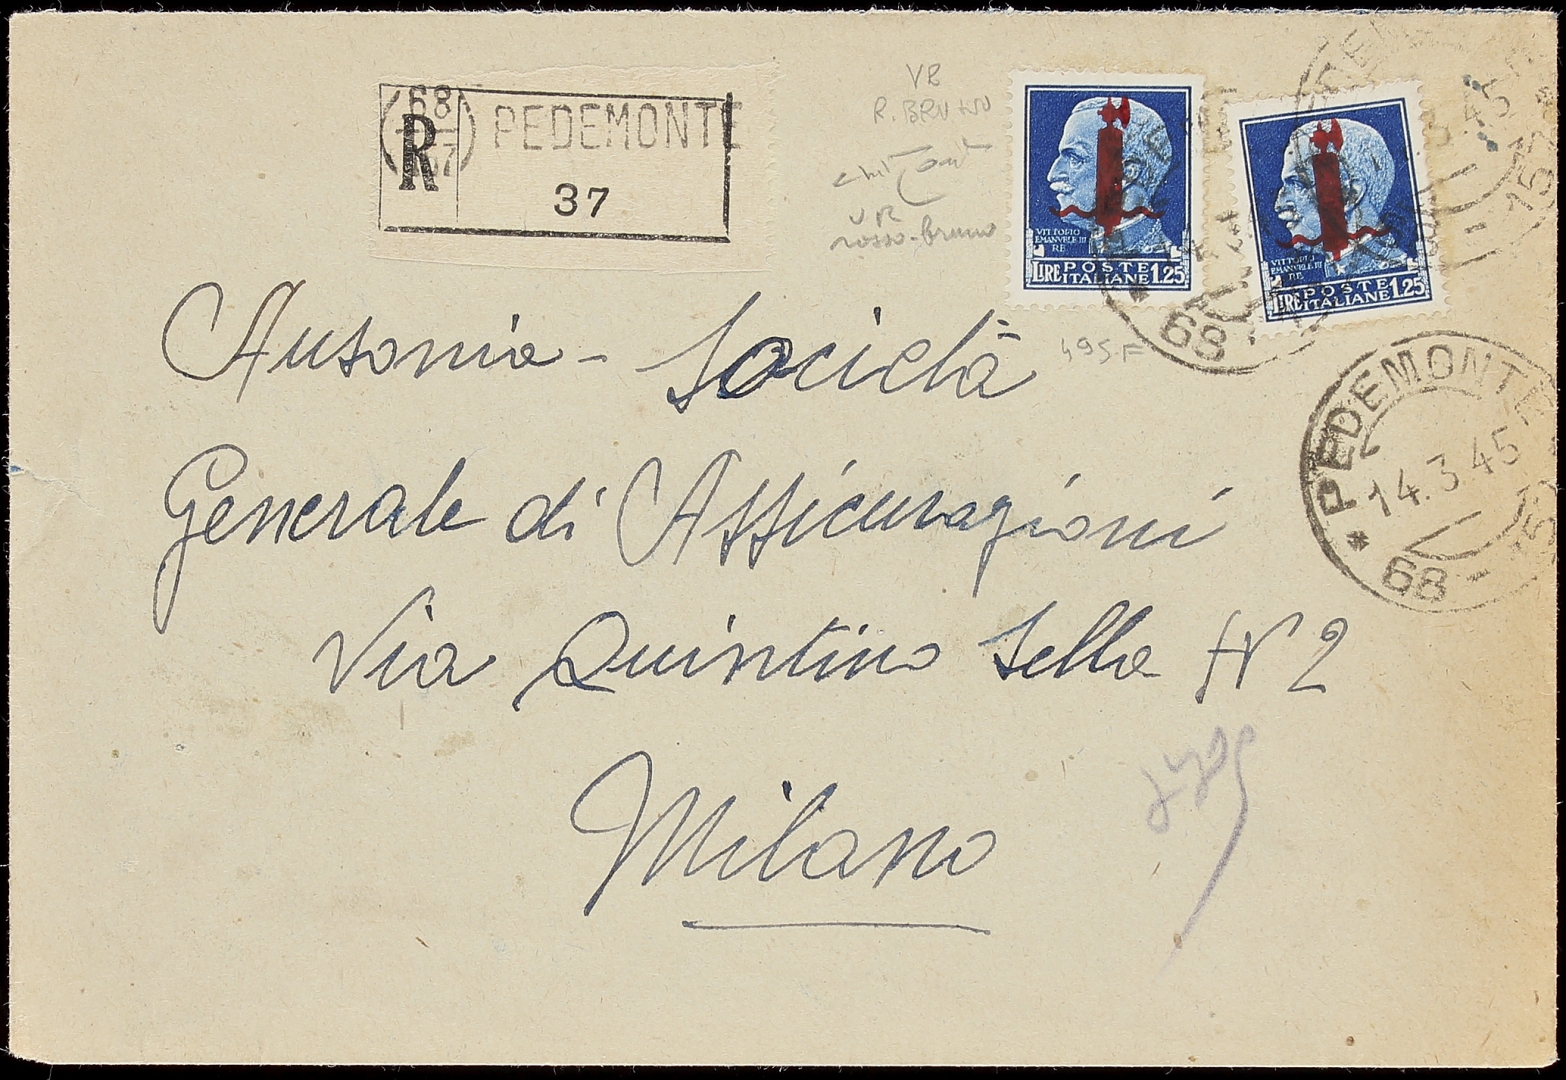 68
R
PEDEMONTE
37
VB
R. BRUNO
UR
rosso-bruno
VITTORIO
EMANUELE III
RE
LIRE POSTE ITALIANE 1.25
VITTORIO
EMANUELE III
RE
LIRE POSTE ITALIANE 1.25
68
3.45
495F
PEDEMONTE
14.3.45
* 68 -
Ausonia - Società
Generale di Assicurazioni
Via Quintino Sella N 2
Milano